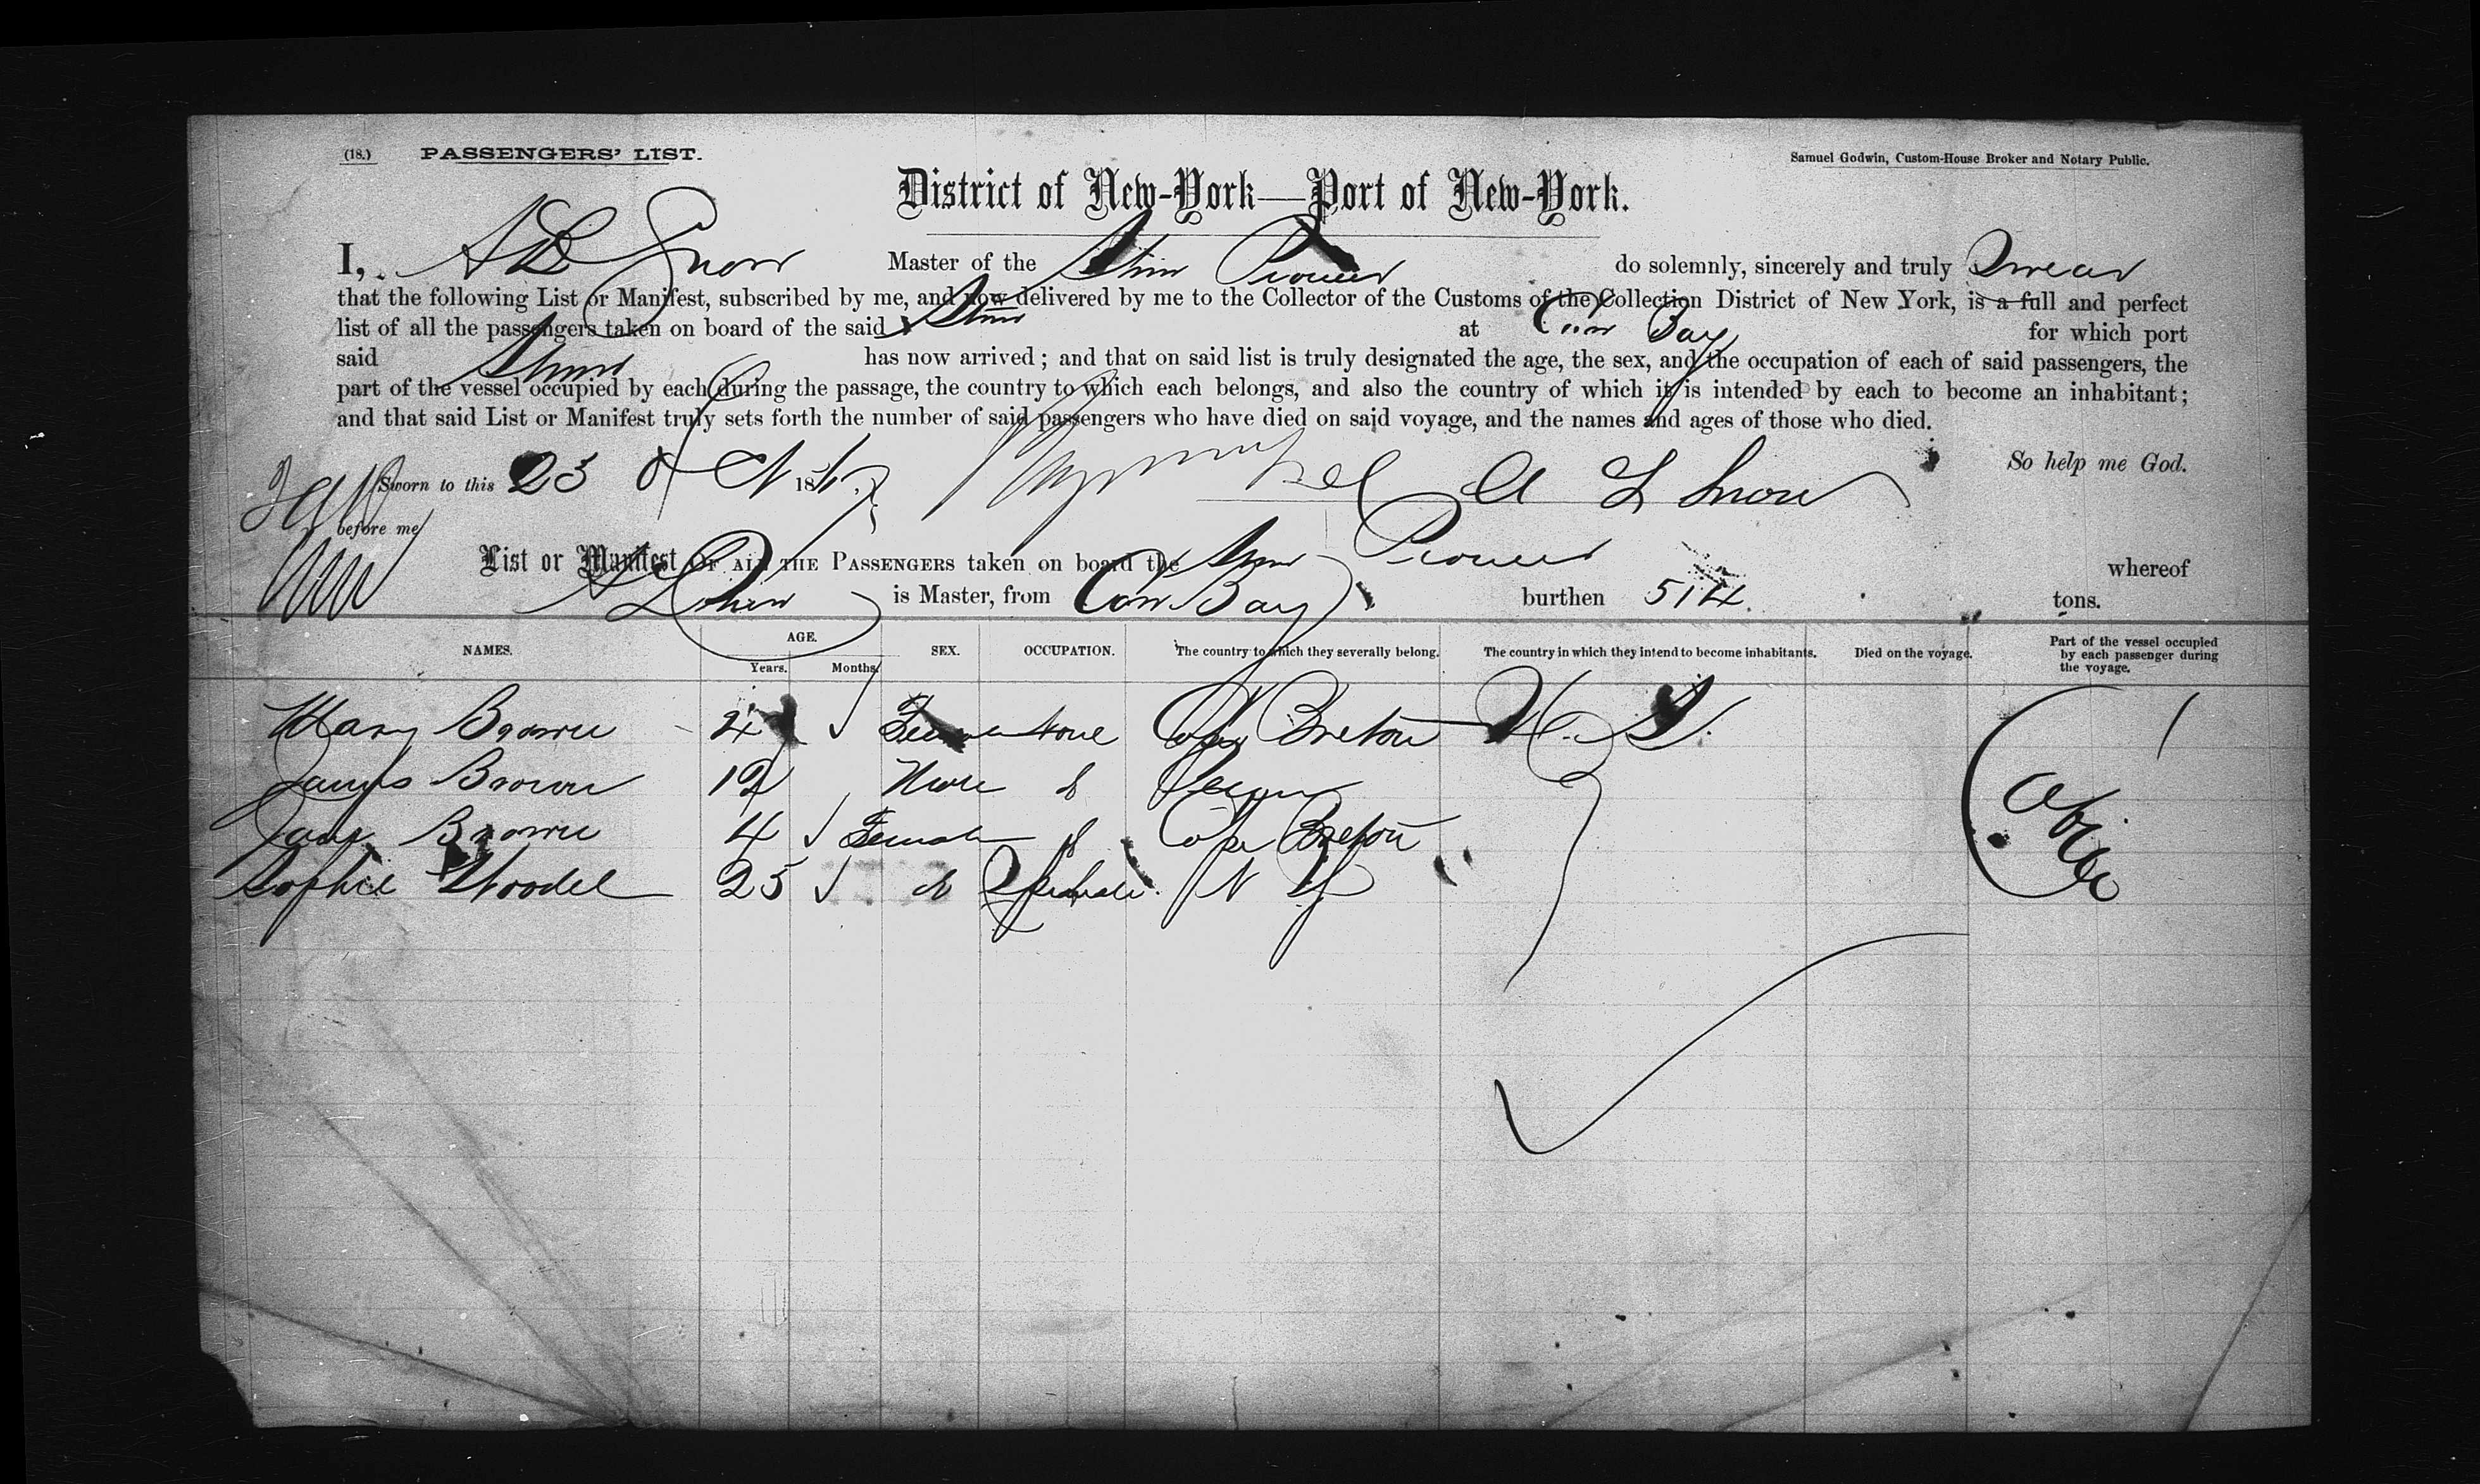 (18.) PASSENGERS' LIST.
Samuel Godwin, Custom-House Broker and Notary Public.
District of New-York—Port of New-York.
I, A L Snow Master of the Stmr Pioneer do solemnly, sincerely and truly Swear
that the following List or Manifest, subscribed by me, and now delivered by me to the Collector of the Customs of the Collection District of New York, is a full and perfect
list of all the passengers taken on board of the said Stmr at Cow Bay for which port
said Stmr has now arrived; and that on said list is truly designated the age, the sex, and the occupation of each of said passengers, the
part of the vessel occupied by each during the passage, the country to which each belongs, and also the country of which it is intended by each to become an inhabitant;
and that said List or Manifest truly sets forth the number of said passengers who have died on said voyage, and the names and ages of those who died.
So help me God.
Sworn to this 23 18 A L Snow
before me
List or Manifest OF ALL THE PASSENGERS taken on board the Stmr Pioneer whereof
is Master, from Cow Bay burthen 514 tons.
NAMES. AGE. Years. Months. SEX. OCCUPATION. The country to which they severally belong. The country in which they intend to become inhabitants. Died on the voyage. Part of the vessel occupied by each passenger during the voyage.
Mary Brown Female None Cape Breton U. S.
James Brown 12
Jane Brown 4 Female Cape Breton
Sophie 25 N